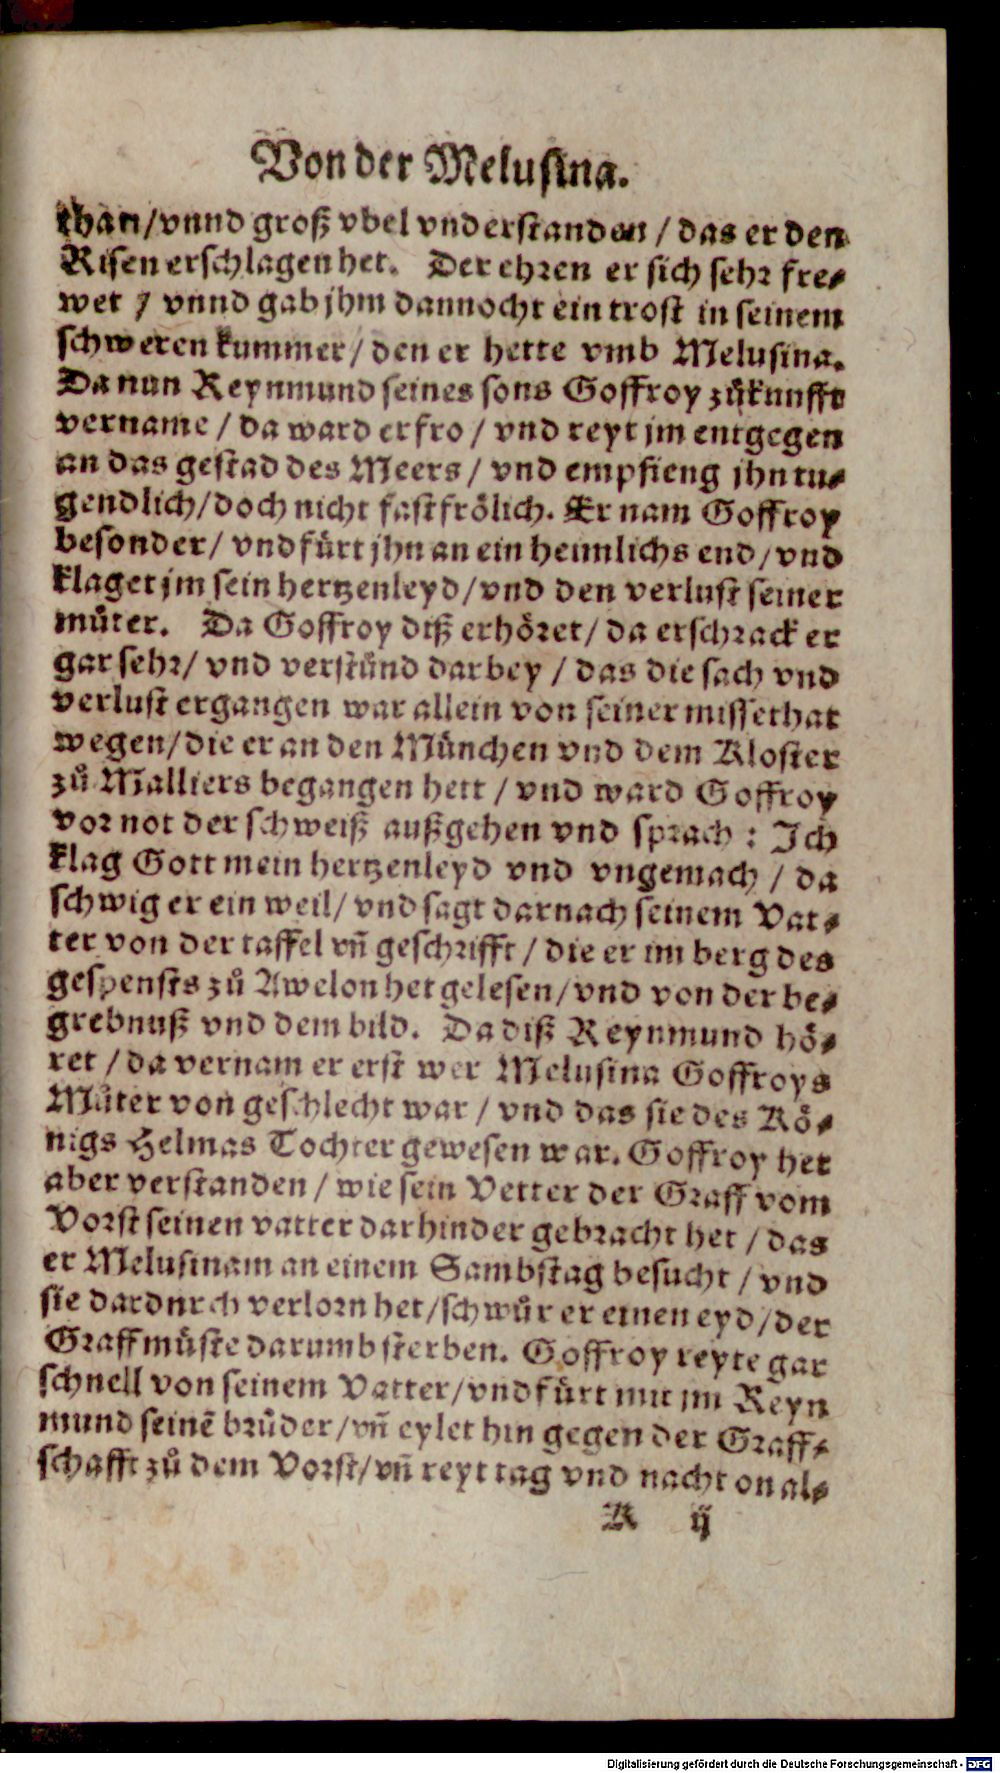 Von der Melusina.
than/vnnd groß vbel vnderstanden / das er den
Risen erschlagen het. Der ehren er sich sehr fre⸗
wet / vnnd gab jhm dannocht ein trost in seinem
schweren kummer/ den er hette vmb Melusina.
Da nun Reynmund seines sons Goffroy zůkunfft
vername / da ward er fro / vnd reyt jm entgegen
an das gestad des Meers / vnd empfieng jhn tu⸗
gendlich/doch nicht fast frölich. Er nam Goffroy
besonder/ vnd fůrt jhn an ein heimlichs end/vnd
klaget jm sein hertzenleyd/vnd den verlust seiner
můter. Da Goffroy diß erhöret/ da erschrack er
gar sehr/ vnd verstůnd darbey / das die sach vnd
verlust ergangen war allein von seiner missethat
wegen/die er an den München vnd dem Kloster
zů Malliers begangen hett / vnd ward Goffroy
vor not der schweiß außgehen vnd sprach : Ich
klag Gott mein hertzenleyd vnd vngemach / da
schwig er ein weil/ vnd sagt darnach seinem Vat⸗
ter von der taffel vñ geschrifft / die er im berg des
gespensts zů Awelon het gelesen/vnd von der be⸗
grebnuß vnd dem bild. Da diß Reynmund hö⸗
ret / da vernam er erst wer Melusina Goffroys
Můter von geschlecht war / vnd das sie des Kö⸗
nigs Helmas Tochter gewesen war. Goffroy het
aber verstanden / wie sein Vetter der Graff vom
Vorst seinen vatter darhinder gebracht het / das
er Melusinam an einem Sambstag besucht / vnd
sie dardnrch verlorn het/schwůr er einen eyd/der
Graff můste darumb sterben. Goffroy reyte gar
schnell von seinem Vatter/vnd fůrt mit jm Reyn
mund seinẽ brůder/vñ eylet hin gegen der Graff⸗
schafft zů dem Vorst/vñ reyt tag vnd nacht on al⸗
K ij
Digitalisierung gefördert durch die Deutsche Forschungsgemeinschaft - DFG